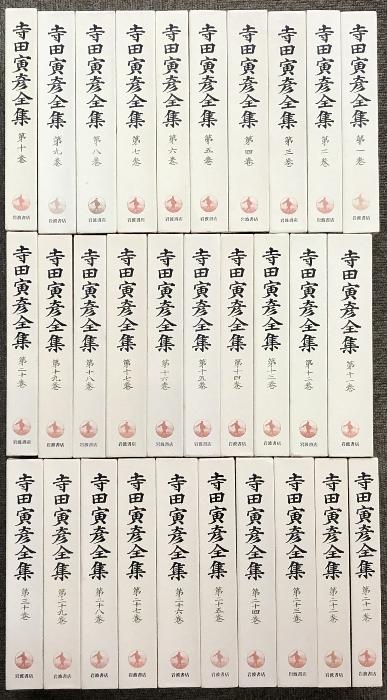 寺田寅彦全集
第一巻
岩波書店
寺田寅彦全集
第二巻
岩波書店
寺田寅彦全集
第三巻
岩波書店
寺田寅彦全集
第四巻
岩波書店
寺田寅彦全集
第五巻
岩波書店
寺田寅彦全集
第六巻
岩波書店
寺田寅彦全集
第七巻
岩波書店
寺田寅彦全集
第八巻
岩波書店
寺田寅彦全集
第九巻
岩波書店
寺田寅彦全集
第十巻
岩波書店
寺田寅彦全集
第十一巻
岩波書店
寺田寅彦全集
第十二巻
岩波書店
寺田寅彦全集
第十三巻
岩波書店
寺田寅彦全集
第十四巻
岩波書店
寺田寅彦全集
第十五巻
岩波書店
寺田寅彦全集
第十六巻
岩波書店
寺田寅彦全集
第十七巻
岩波書店
寺田寅彦全集
第十八巻
岩波書店
寺田寅彦全集
第十九巻
岩波書店
寺田寅彦全集
第二十巻
岩波書店
寺田寅彦全集
第二十一巻
岩波書店
寺田寅彦全集
第二十二巻
岩波書店
寺田寅彦全集
第二十三巻
岩波書店
寺田寅彦全集
第二十四巻
岩波書店
寺田寅彦全集
第二十五巻
岩波書店
寺田寅彦全集
第二十六巻
岩波書店
寺田寅彦全集
第二十七巻
岩波書店
寺田寅彦全集
第二十八巻
岩波書店
寺田寅彦全集
第二十九巻
岩波書店
寺田寅彦全集
第三十巻
岩波書店